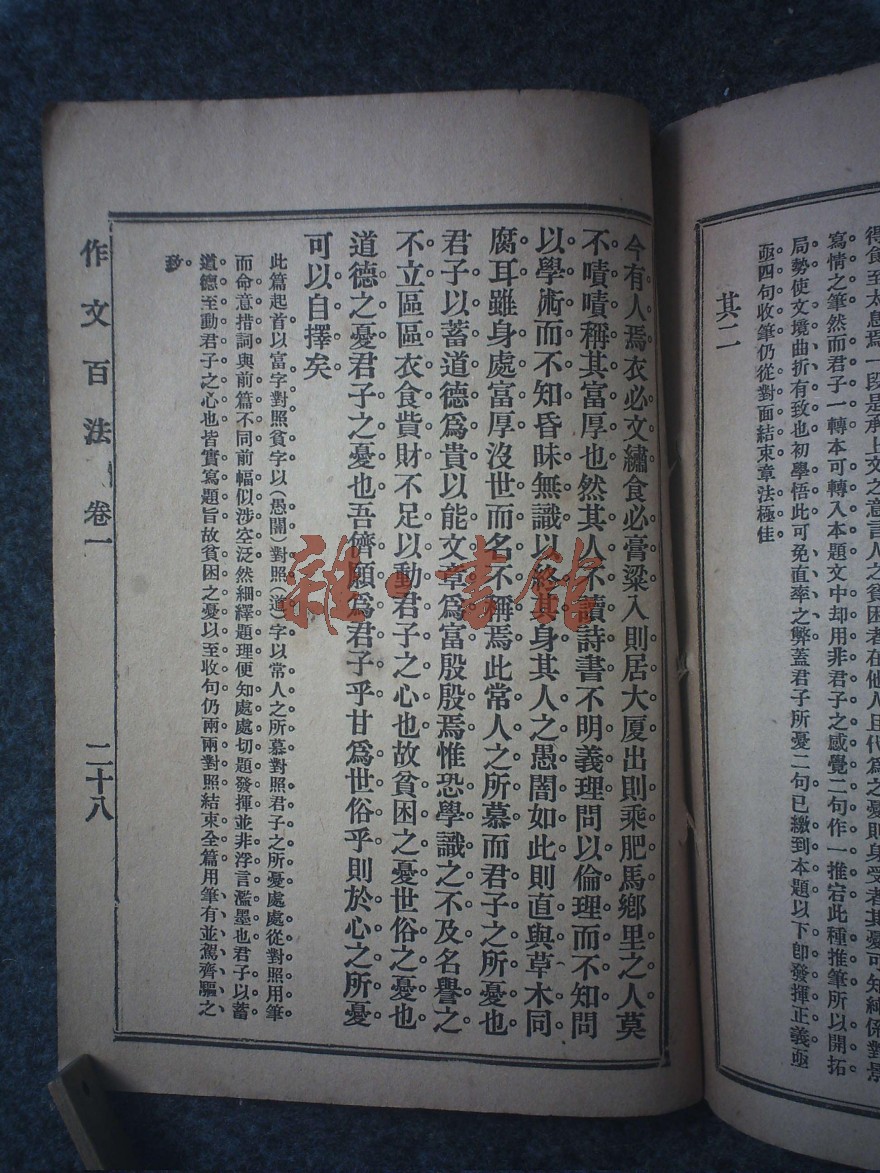 得食至太息焉一段是承上文之意言人之貧困者在他人且代爲之憂則身受者其憂可知純係對景
寫情之筆然而君子一轉本可轉入本題文中却用非君子之感覺二句作一推宕此種推筆所以開拓
局勢使文境曲折有致也初學悟此可免直率之弊蓋君子所憂二句已繳到本題以下卽發揮正義亟
亟四句收筆仍從對面結束章法極佳
其二
今有人焉衣必文繡食必膏粱入則居大厦出則乘肥馬鄉里之人莫
不嘖嘖稱其富厚也然其人不讀詩書不明義理問以倫理而不知問
以學術而不知昏昧無識以終其身其人之愚闇如此則直與草木同
腐耳雖身處富厚沒世而名不稱焉此常人之所慕而君子之所憂也
君子以蓄道德爲貴以能文章爲富殷殷焉惟恐學識之不及名譽之
不立區區衣食貲財不足以動君子之心也故貧困之憂世俗之憂也
道德之憂君子之憂也吾儕願爲君子乎甘爲世俗乎則於心之所憂
可以自擇矣
此篇起首以富字對照貧字以(愚闇)對照(道)字以常人之所慕對照君子之所憂處處從對照用筆
而命意措詞與前篇不同前幅似涉空泛然細繹題理便知處處切題發揮並非浮言濫墨也君子以蓄
道德至動君子之心也皆實寫題旨故貧困之憂以至收句仍兩兩對照結束全篇用筆有並駕齊驅之
妙
作文百法 卷一 二十八
雜·書館